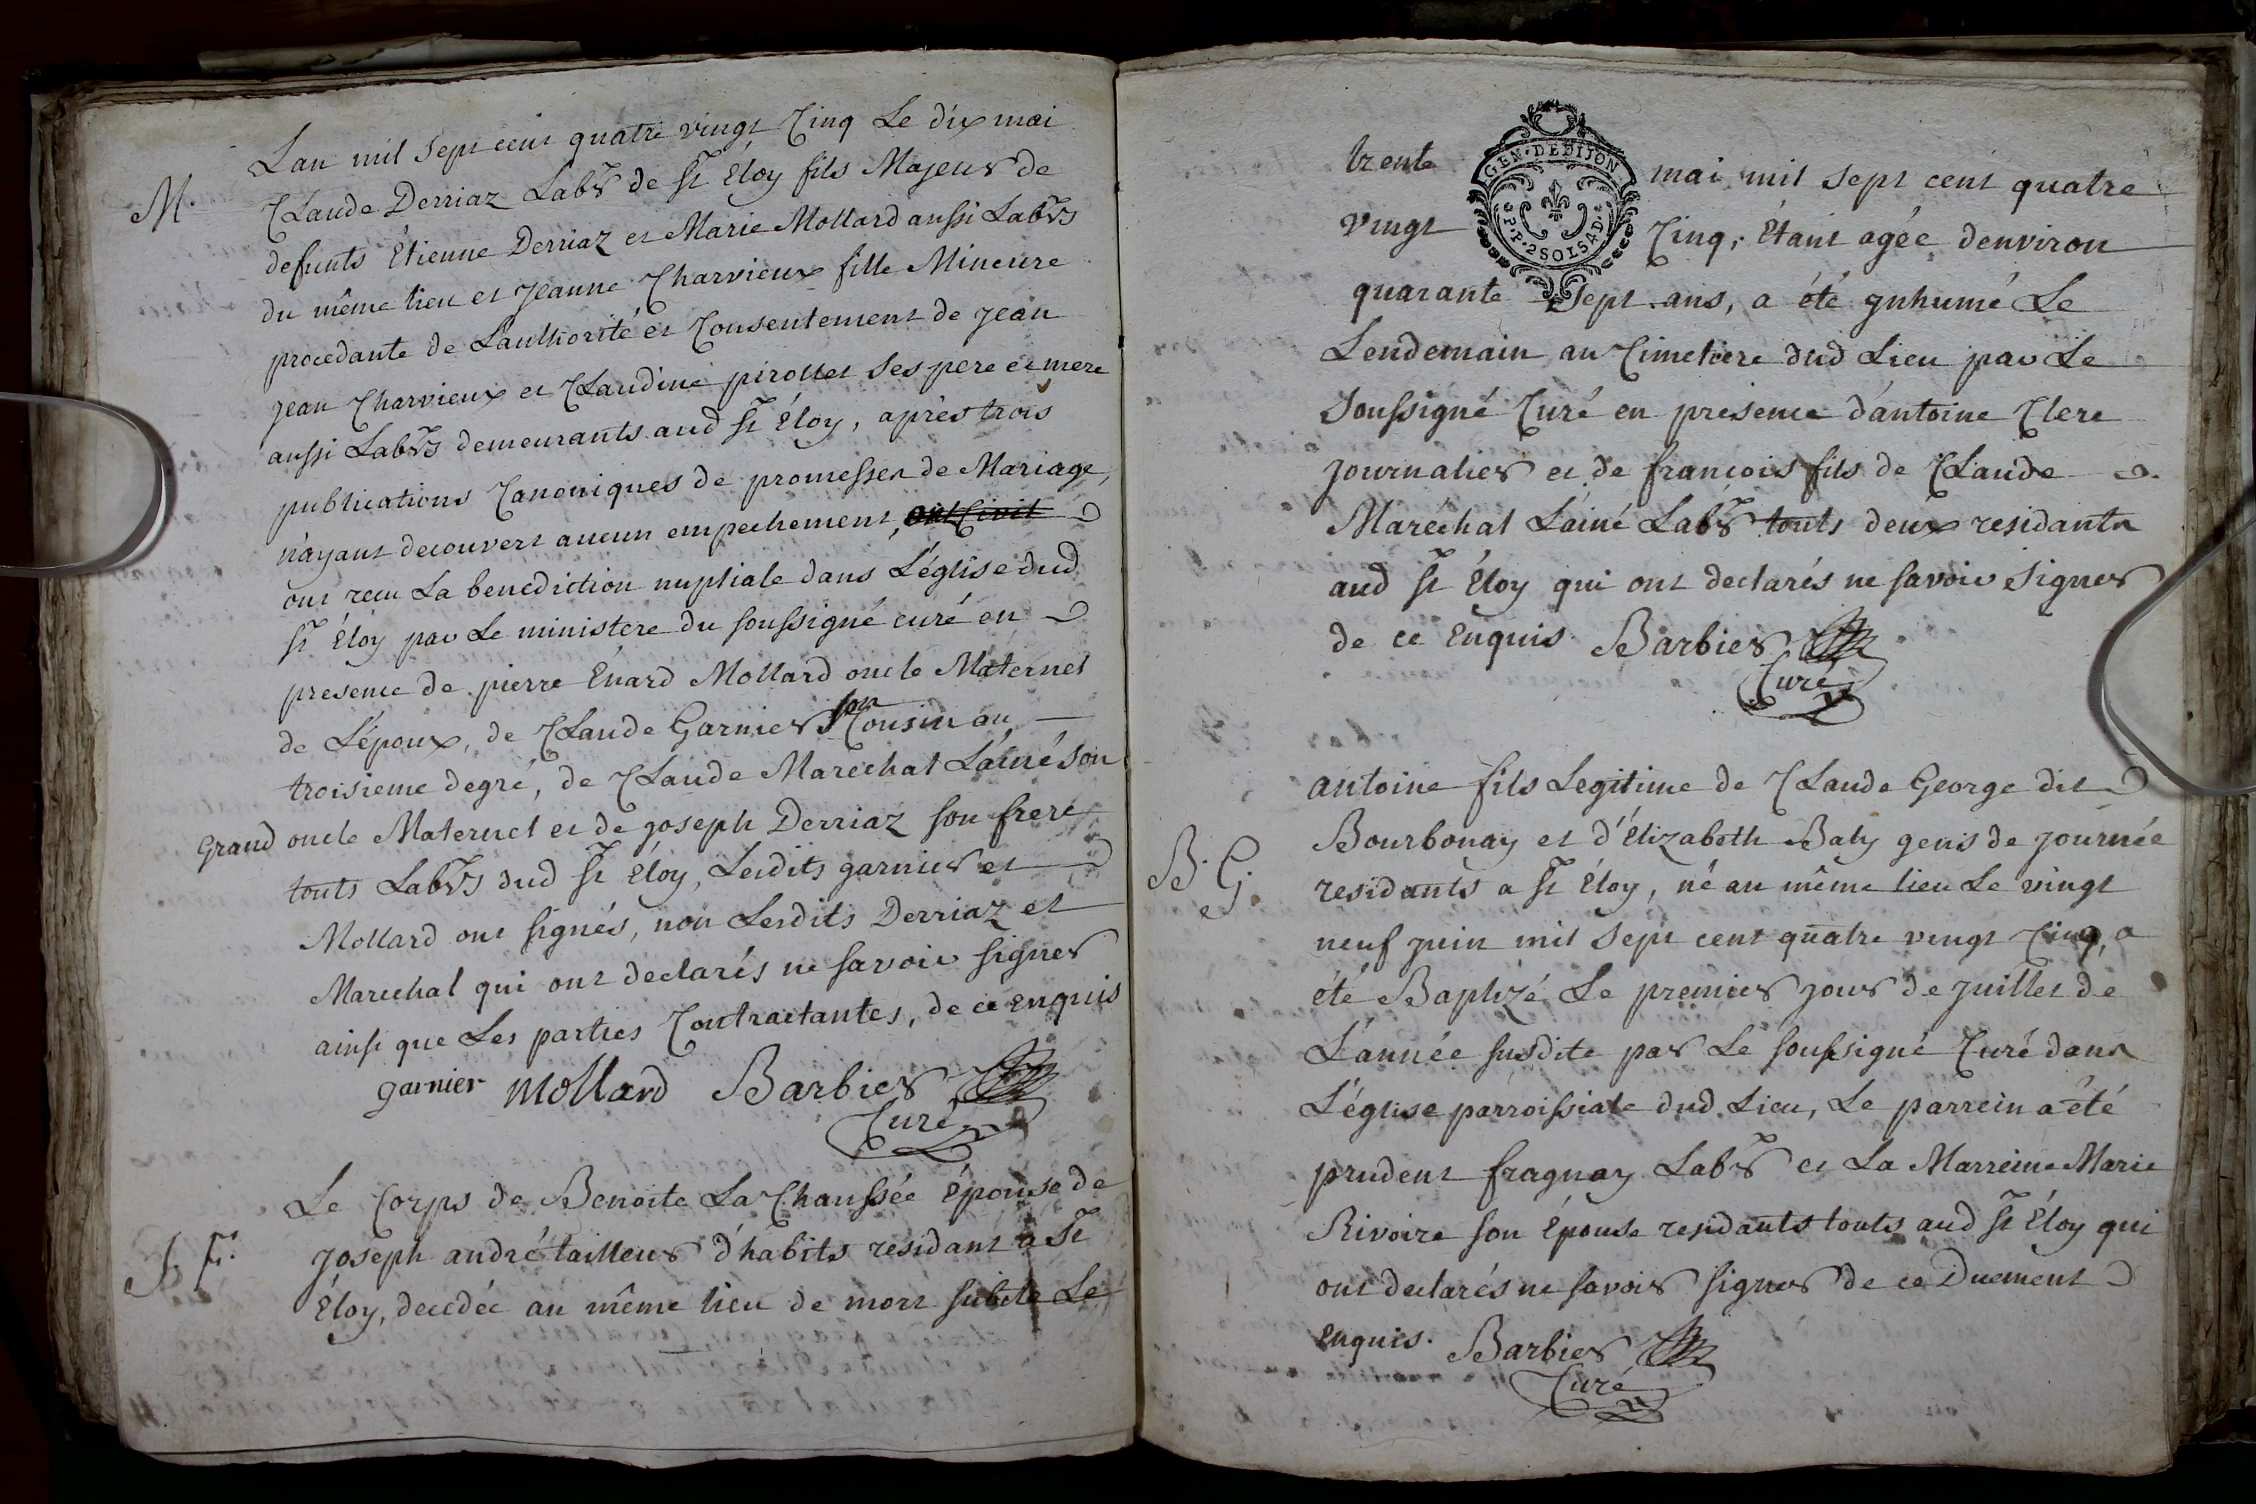 Lan mil sept cent quatre vingt Cinq Le dix mai
M. Claude Derriaz Labr de St Éloy fils Majeur de
defunts Étienne Derriaz et Marie Mollard aussi Labrs
du même lieu et Jeanne Charvieux fille Mineure
procedante de L'authorité et Consentement de Jean
Jean Charvieux et Claudine pirollet Ses pere et mere
aussi Labrs demeurants aud St Éloy, après trois
publications Canoniques de promesses de Mariage,
n'ayant decouvert aucun empechement,
ont recu La benediction nuptiale dans L'église dud
St Éloy par Le ministere du soussigné curé en
presence de pierre Énard Mollard oncle Maternel
de L'époux, de Claude Garnier son Cousin au
troisieme degré, de Claude Marechal L'ainé son
grand oncle Maternel et de joseph Derriaz son frere
touts Labrs dud St Éloy, Lesdits garnier et
Mollard ont signés, non Lesdits Derriaz et
Marechal qui ont declarés ne savoir signer
ainsi que Les parties Contractantes, de ce enquis
garnier Mollard Barbier
Curé
Le Corps de Benoite La Chaussée Épouse de
Joseph andré tailleur d'habits résidant a St
Éloy, decedée au même lieu de mort subite Le
trente mai mil sept cent quatre
GEN·DE DIJON
vingt Cinq, Étant agée d'environ
P.P. 2 SOLS 4 D.
quarante Sept ans, a été inhumé Le
Lendemain au Cimetiere dud Lieu par Le
Soussigné Curé en presence d'antoine Clere
journalier et de francois fils de Claude
Maréchal L'ainé Labr touts deux residants
aud St Éloy qui ont declarés ne savoir Signer
de ce Enquis Barbier
Curé
B. G.
antoine fils Legitime de Claude George dit
Bourbonay et d'Élizabeth Baly gens de journée
residants a St Éloy, né au même lieu Le vingt
neuf juin mil Sept cent quatre vingt Cinq, a
été Baptizé Le premier jour de juillet de
L'année susdite par Le soussigné Curé dans
L'église parroissiale dud Lieu, Le parrein a été
prudent fragnay Labr et La Marreine Marie
Rivoire son Épouse residants touts aud St Éloy qui
ont declarés ne savoir signer de ce Duement
Enquis. Barbier
Curé